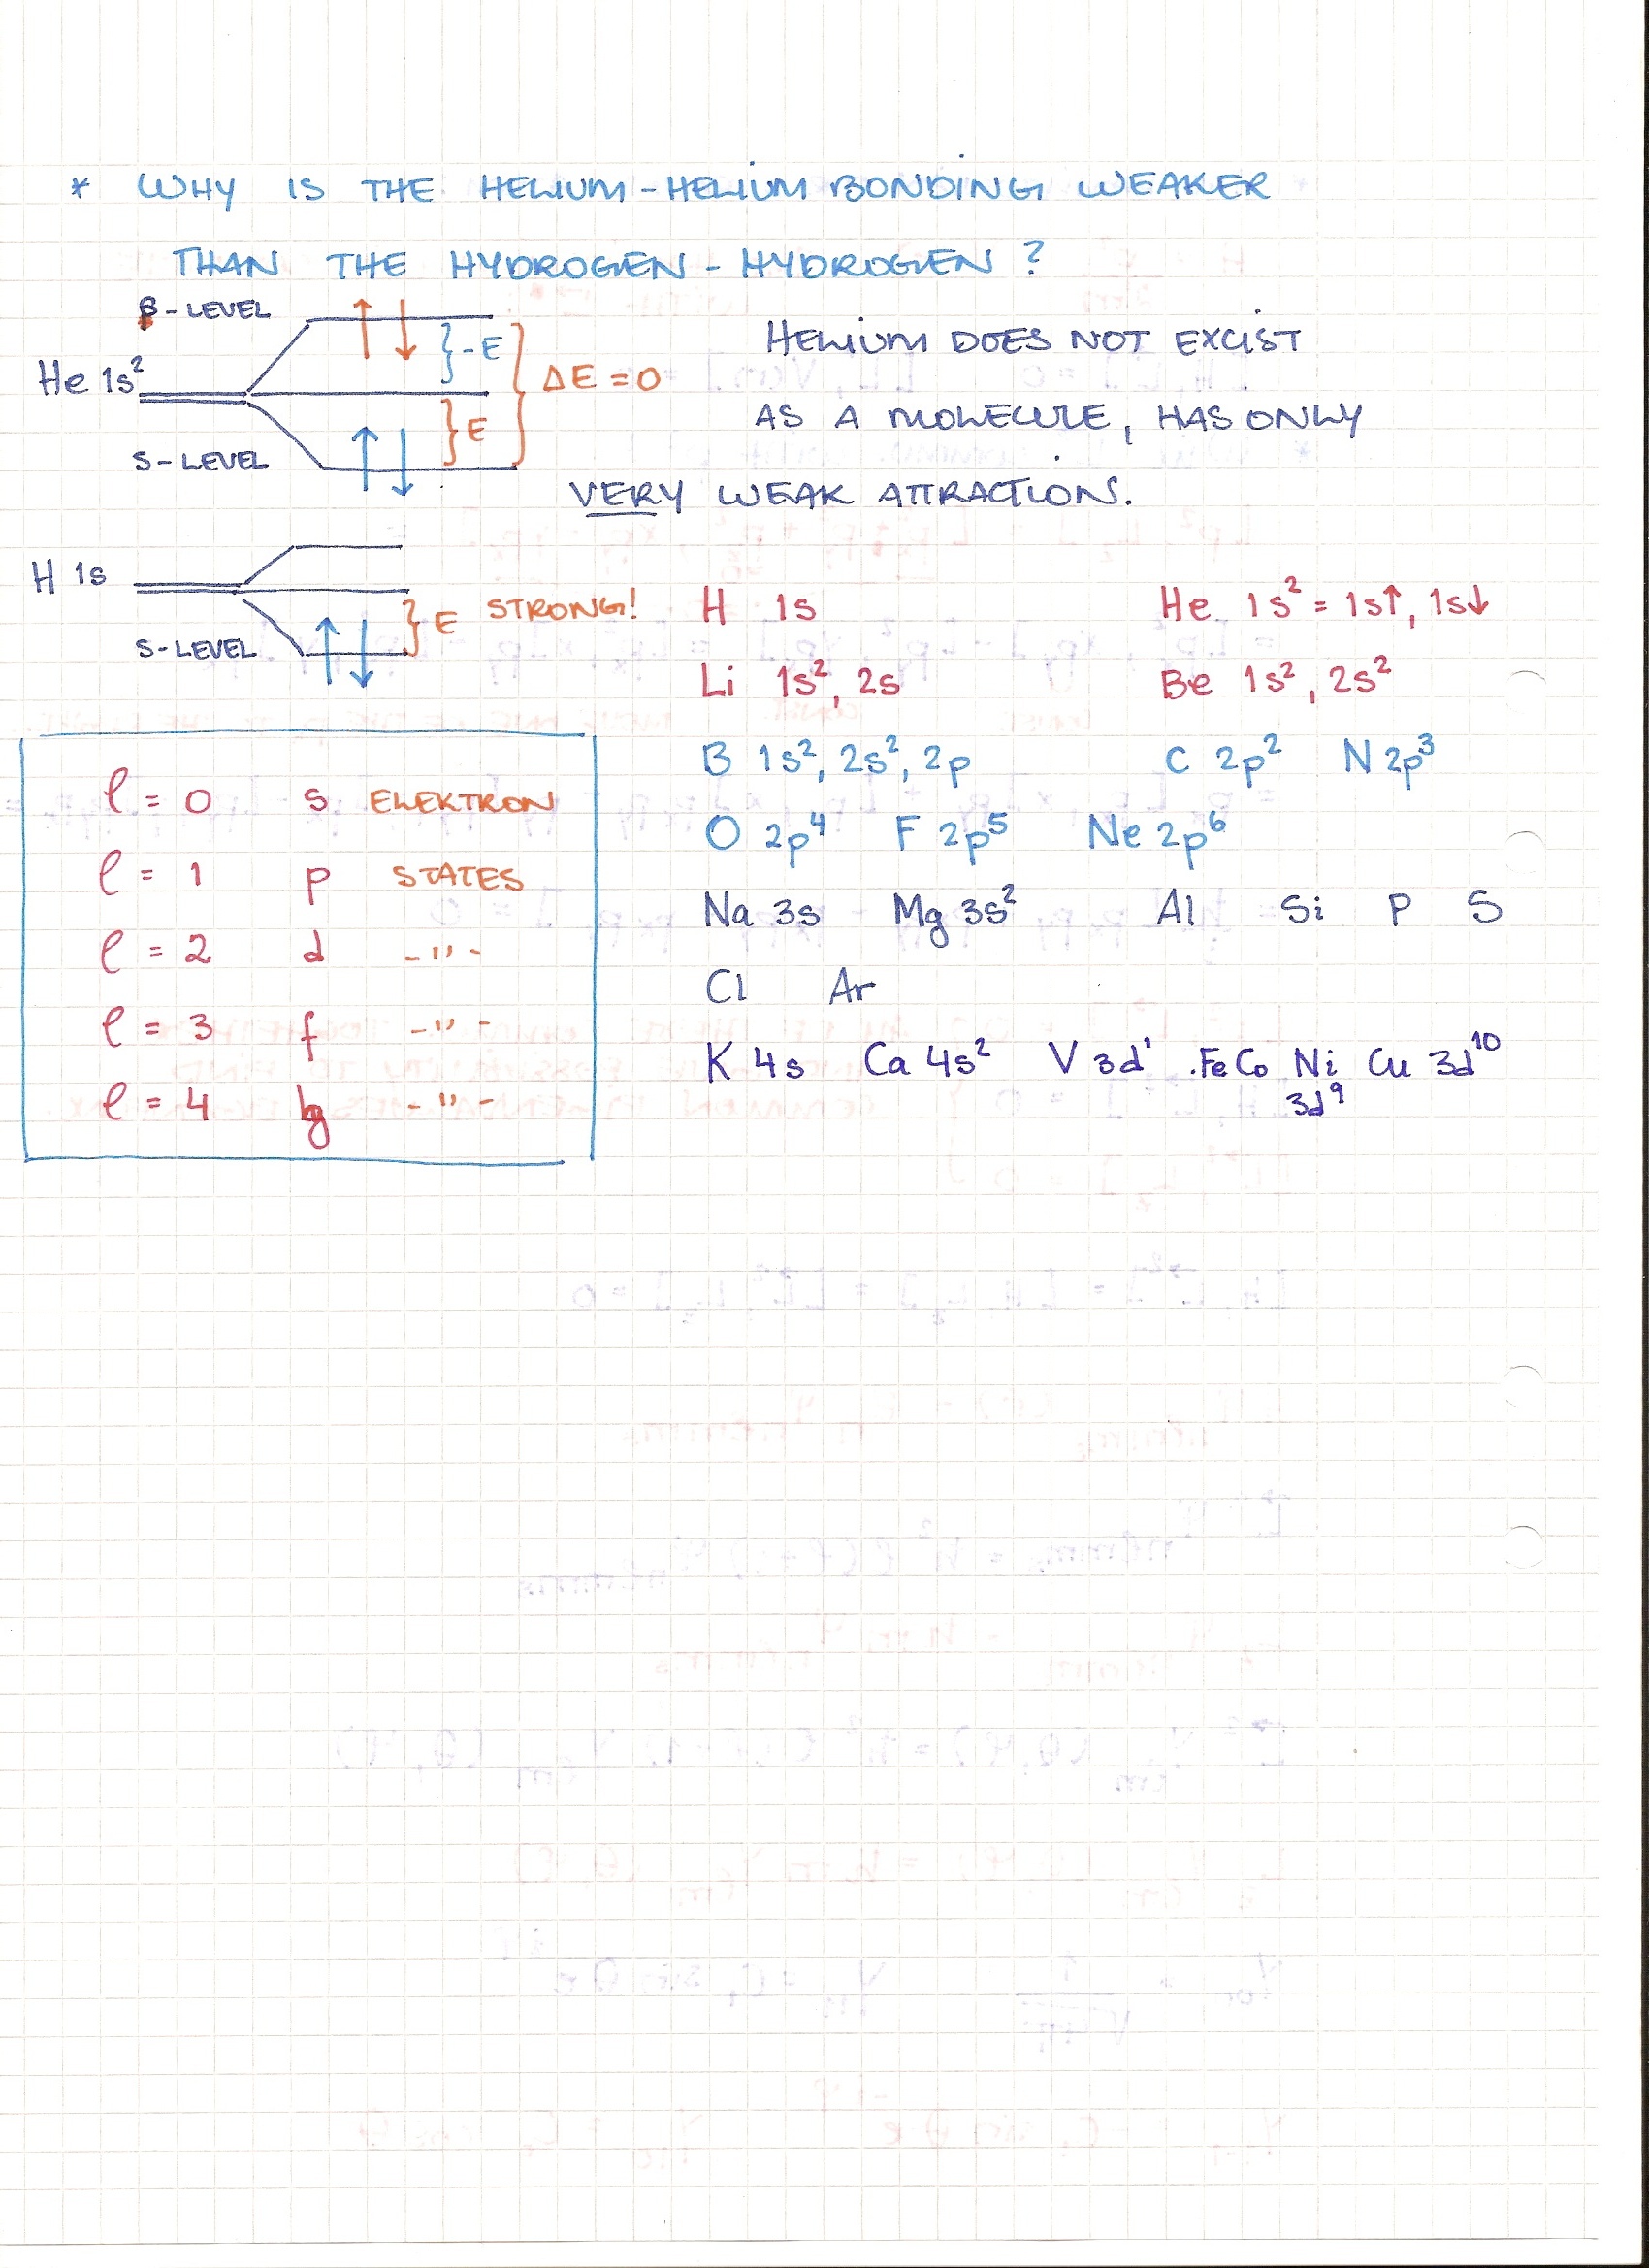 * WHY IS THE HELIUM-HELIUM BONDING WEAKER
THAN THE HYDROGEN - HYDROGEN ?
- LEVEL
He 1s²
}-E
} E
} ΔE = 0
S-LEVEL
HELIUM DOES NOT EXCIST
AS A MOLECULE, HAS ONLY
VERY WEAK ATTRACTIONS.
H 1s
} E STRONG!
S-LEVEL
H 1s He 1s² = 1s↑, 1s↓
Li 1s², 2s Be 1s², 2s²
B 1s², 2s², 2p C 2p² N 2p³
O 2p⁴ F 2p⁵ Ne 2p⁶
Na 3s Mg 3s² Al Si P S
Cl Ar
K 4s Ca 4s² V 3d¹ .Fe Co Ni Cu 3d¹⁰
3d⁹
ℓ = 0 s ELEKTRON
ℓ = 1 p STATES
ℓ = 2 d -"-
ℓ = 3 f -"-
ℓ = 4 g -"-